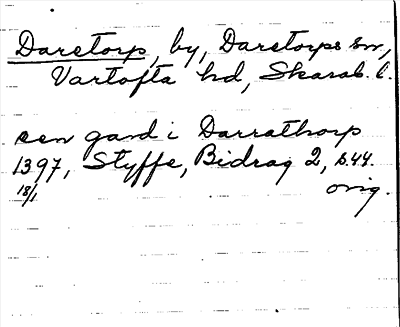 Daretorp, by, Daretorps sn,
Vartofta hd, Skarab. l.
een gard i Darrathorp
1397, Styffe, Bidrag 2, s. 44.
18/1 orig.